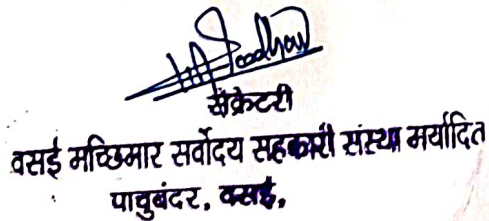 सेक्रेटरी
वसई मच्छिमार सर्वोदय सहकारी संस्था मर्यादित
पाचुबंदर, वसई,